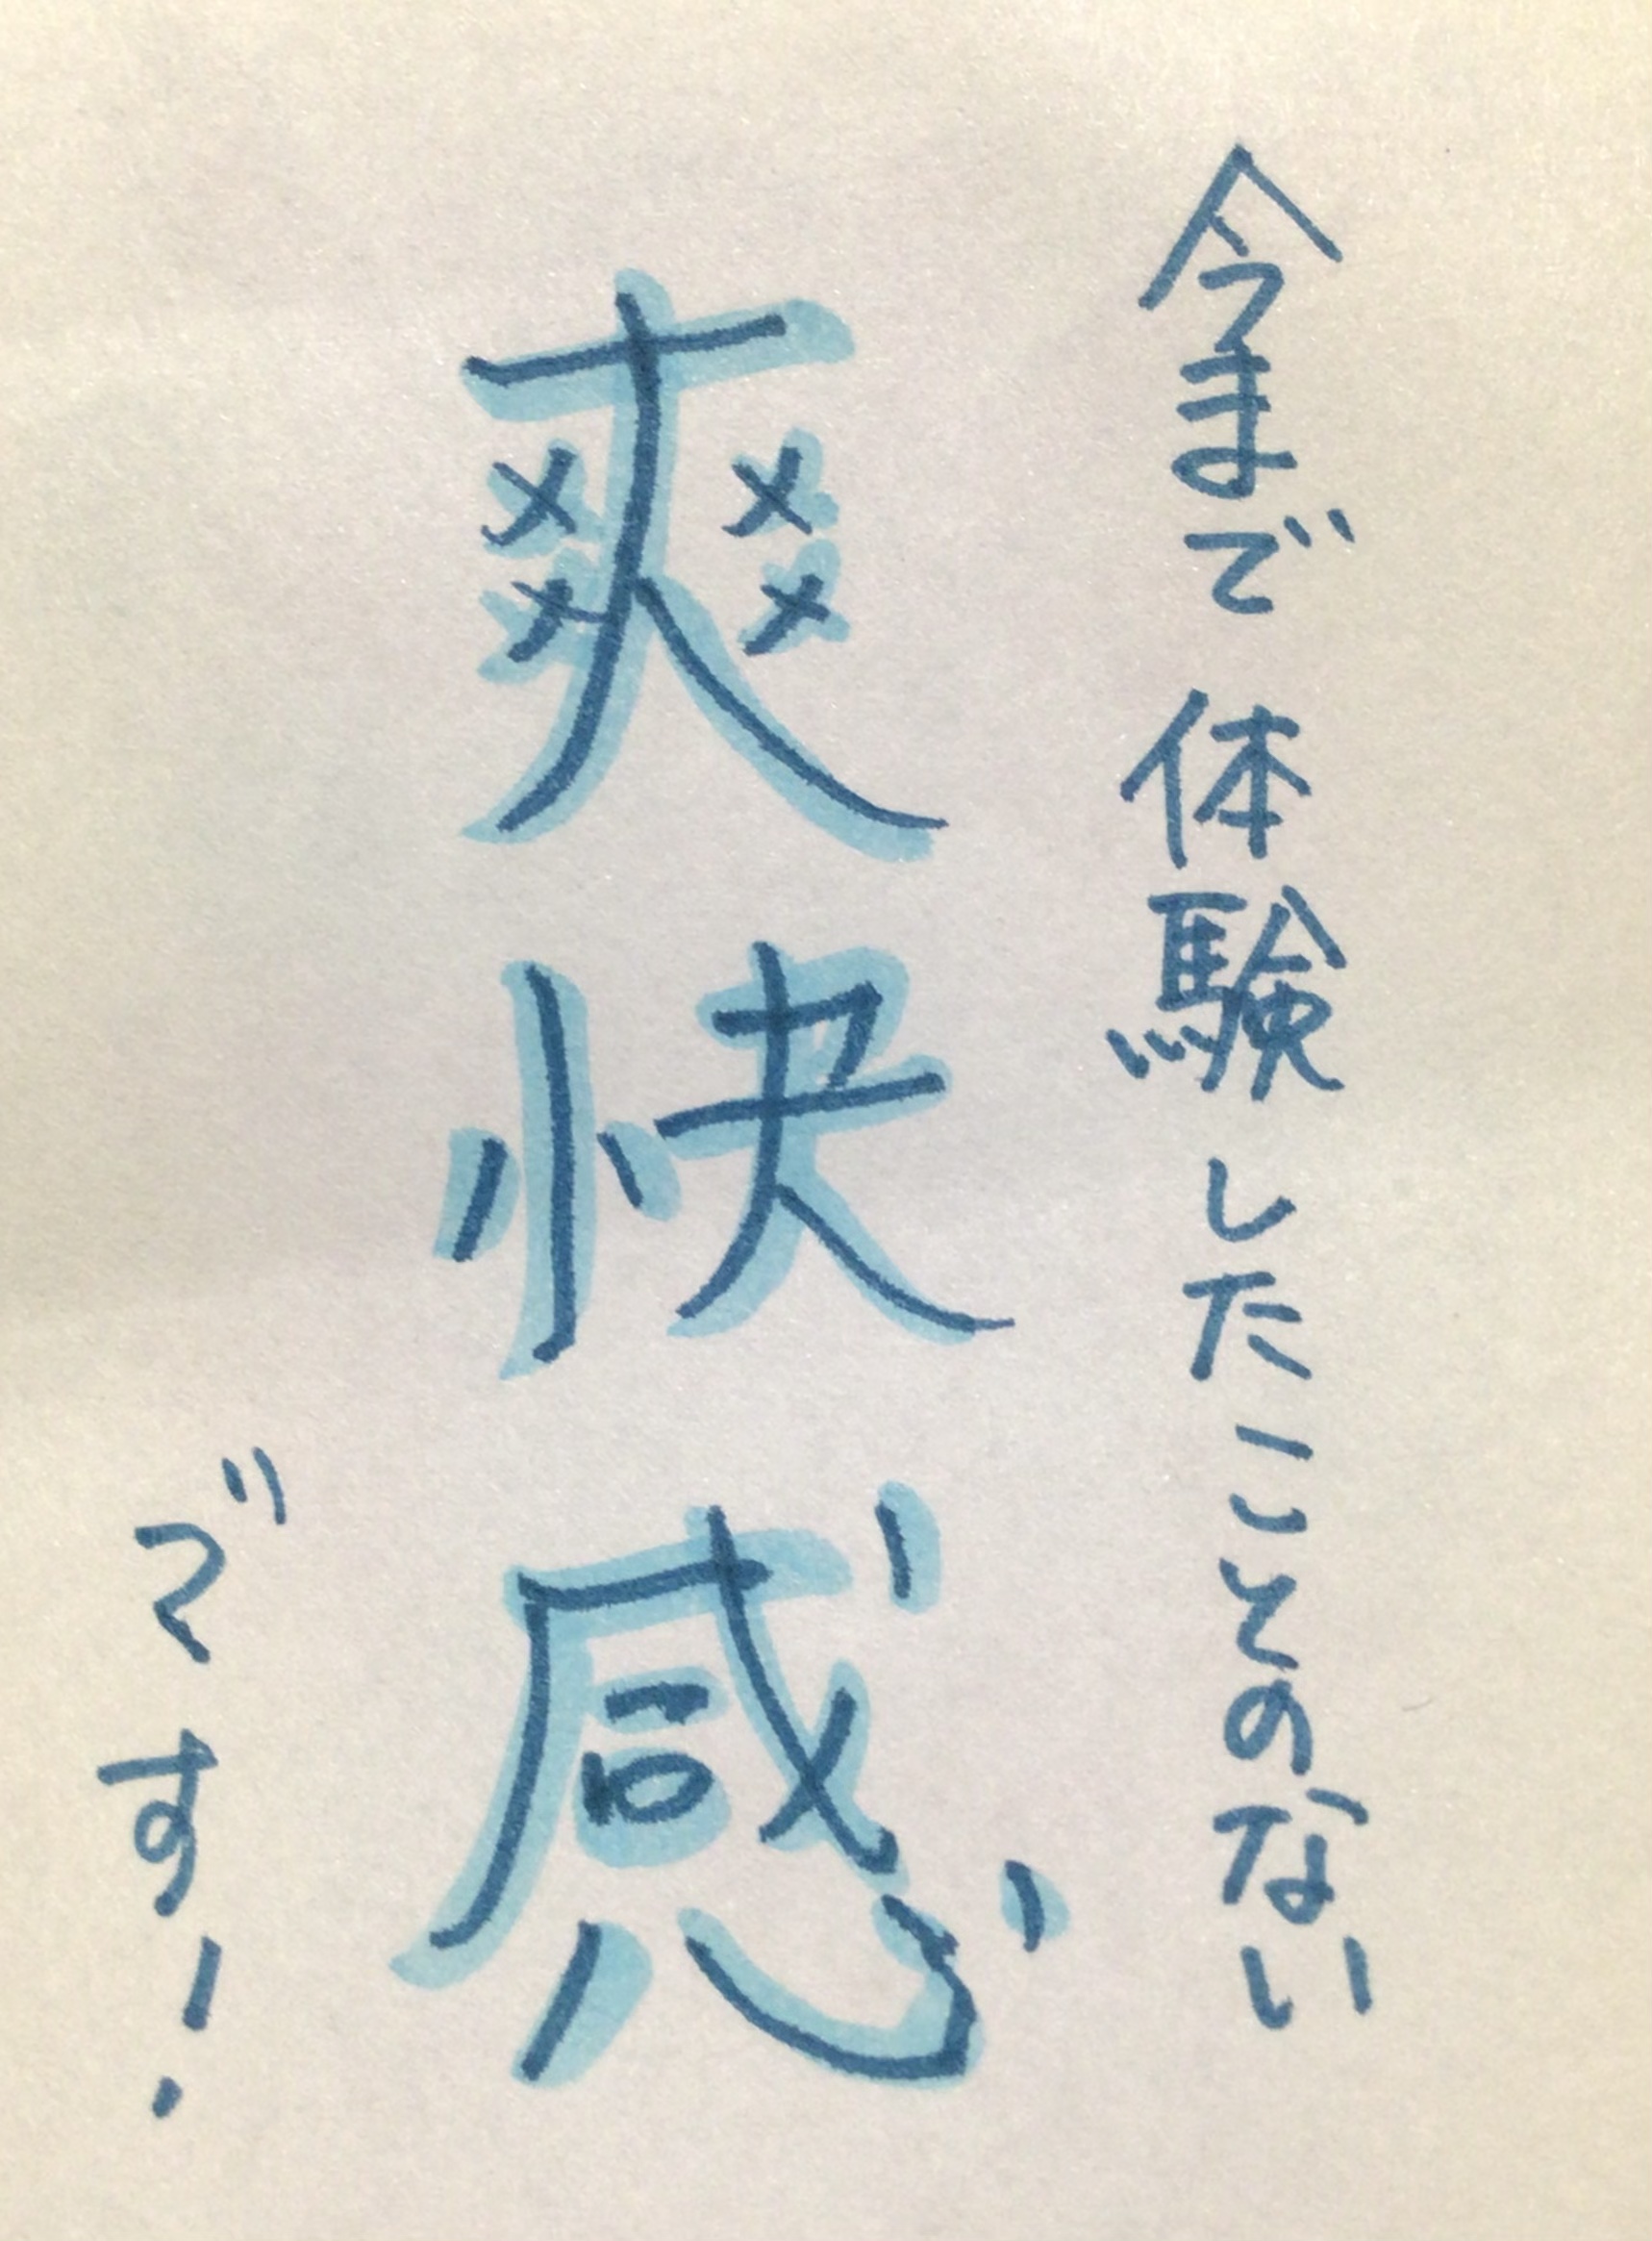 今まで体験したことのない
爽快感
です!